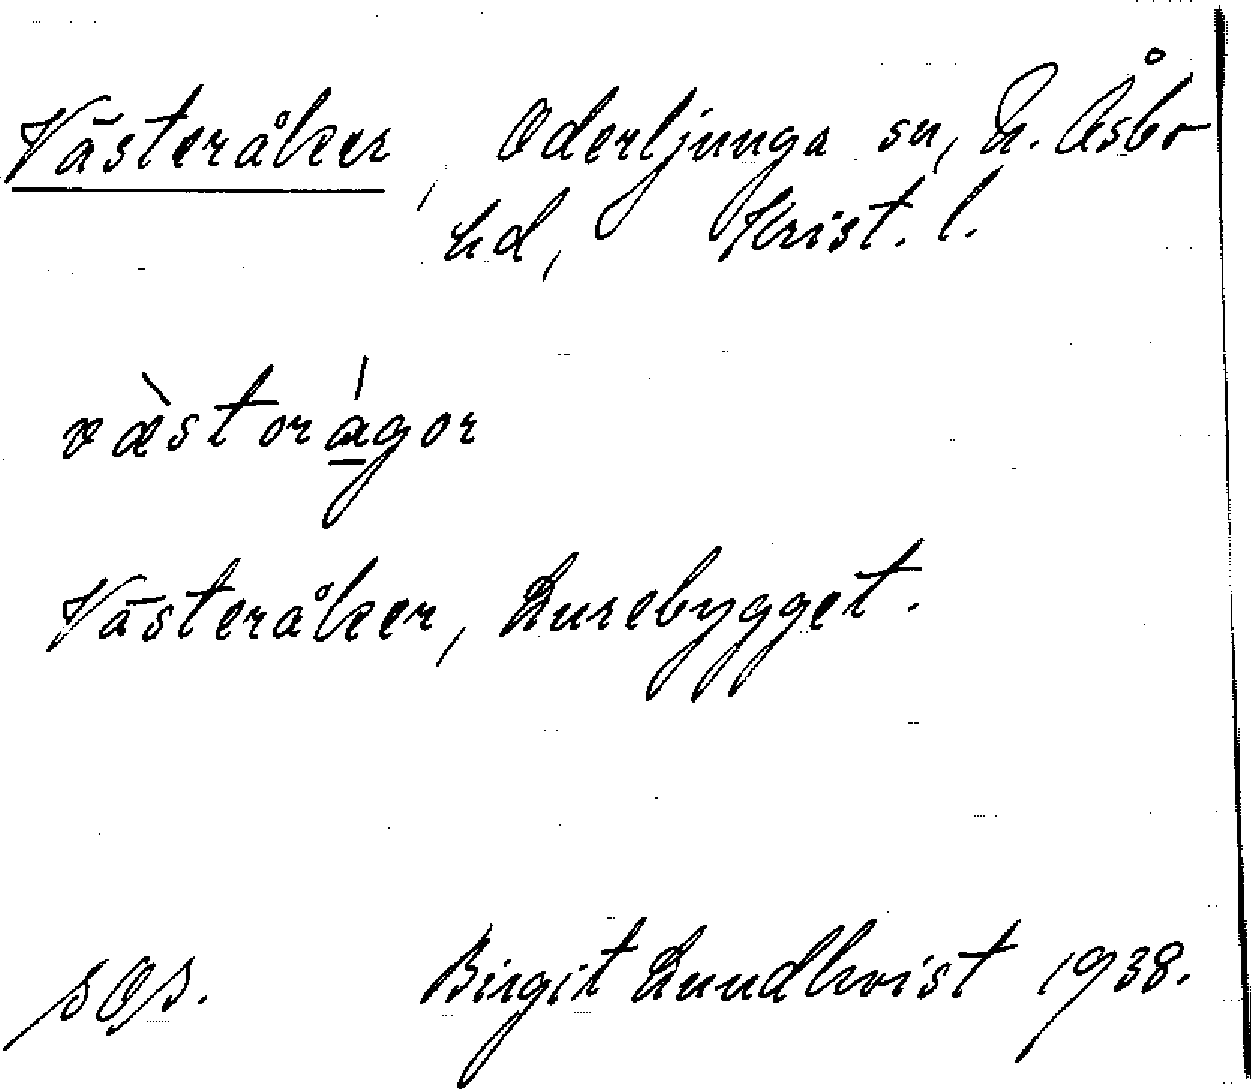 Västeråker, Oderljunga sn, N. Åsbo
hd, Krist. l.
væ̀storágor
Västeråker, Lurebygget.
SOS. Birgit Lundkvist 1938.